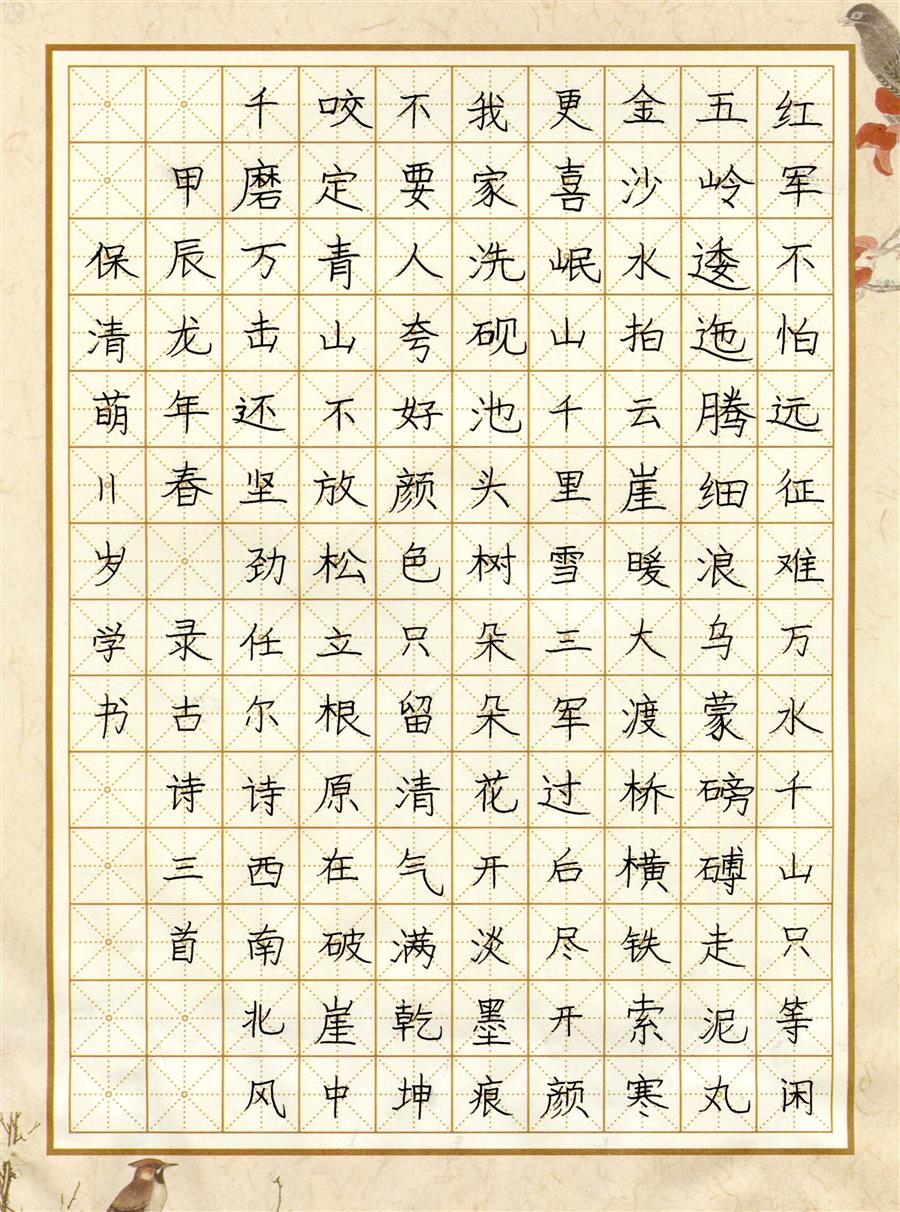 红军不怕远征难万水千山只等闲
五岭逶迤腾细浪乌蒙磅礴走泥丸
金沙水拍云崖暖大渡桥横铁索寒
更喜岷山千里雪三军过后尽开颜
我家洗砚池头树朵朵花开淡墨痕
不要人夸好颜色只留清气满乾坤
咬定青山不放松立根原在破崖中
千磨万击还坚劲任尔诗西南北风
甲辰龙年春 录古诗三首
保清萌11岁学书